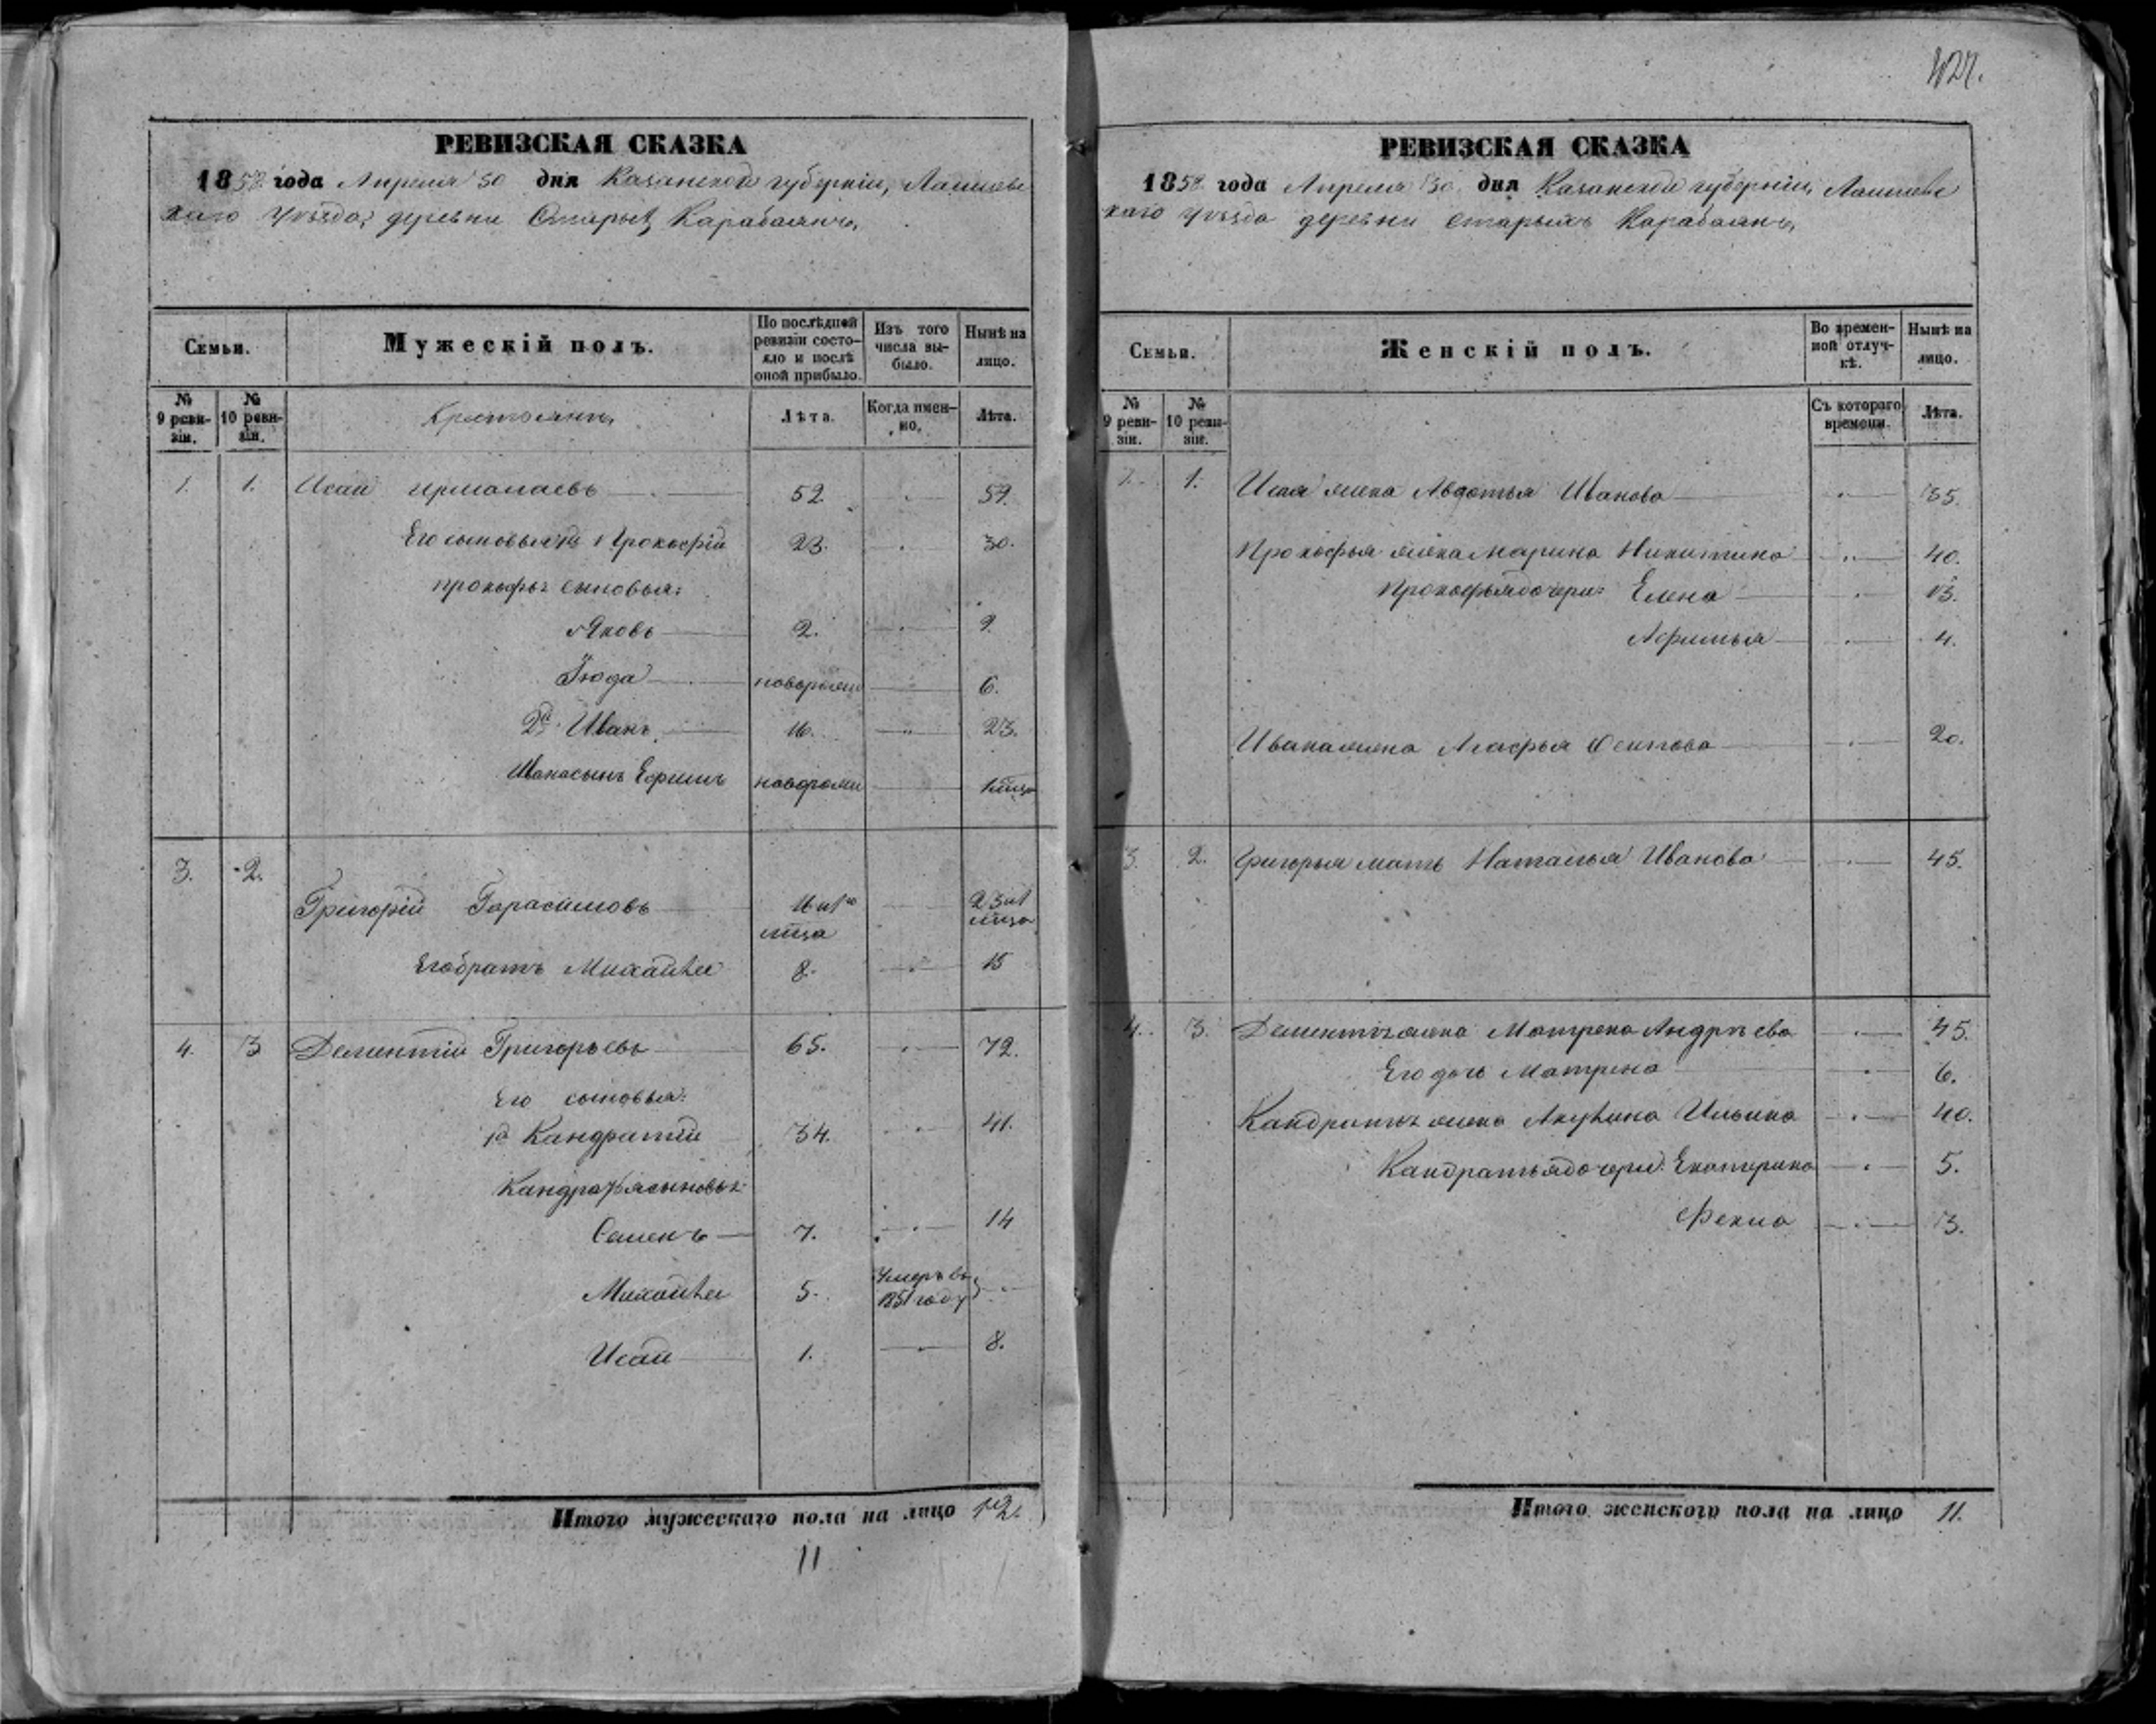 427.
РЕВИЗСКАЯ СКАЗКА
1858 года Апреля 30 дня Казанской губерніи, Лаишевс
каго Уѣзда, деревни Старыхъ Карабаянъ,
Семьи.
Мужескій полъ.
По послѣдней ревизіи состояло и послѣ оной прибыло.
Изъ того числа выбыло.
Нынѣ на лицо.
№ 9 ревизіи.
№ 10 ревизіи.
Крестьянъ,
Лѣта.
Когда именно.
Лѣта.
1. 1. Исай 52. 59.
Его сыновья 1й Прокофій 23. 30.
Прокофья сыновья:
Яковъ 2. 9.
Іюда новорожд 6.
2й Иванъ 16. 23.
Ивана сынъ Ефимъ новорожд
3. 2.
Григорій Гарасимовъ
Его братъ Михайла 8. 15
4. 3 Дементій Григорьевъ 65. 72.
Его сыновья:
1й Кандратій 34. 41.
Кандратья сыновья:
Семенъ 7. 14
Михайла 5. Умеръ въ 1851 году
Исай 1. 8.
Итого мужескаго пола на лицо 12.
11
РЕВИЗСКАЯ СКАЗКА
1858 года Апреля 30 дня Казанской губерніи, Лаишевс
каго Уѣзда деревни Старыхъ Карабаянъ,
Семьи.
Женскій полъ.
Во временной отлучкѣ.
Нынѣ на лицо.
№ 9 ревизіи.
№ 10 ревизіи.
Съ котораго времени.
Лѣта.
1. 1. Исая жена Авдотья Иванова
Прокофья жена Марина Никитина 40.
Прокофья дочери: Елена 13.
Афимья 4.
Ивана жена Агафья Осипова 20.
3. 2. Григорья мать Наталья Иванова 45.
4. 3. Дементія жена Матрена Андрѣева 45.
Его дочь Матрена 6.
Кандратья жена Акулина Ильина 40.
Кандратья дочери: Екатерина 5.
Фекла 3.
Итого женскаго пола на лицо 11.